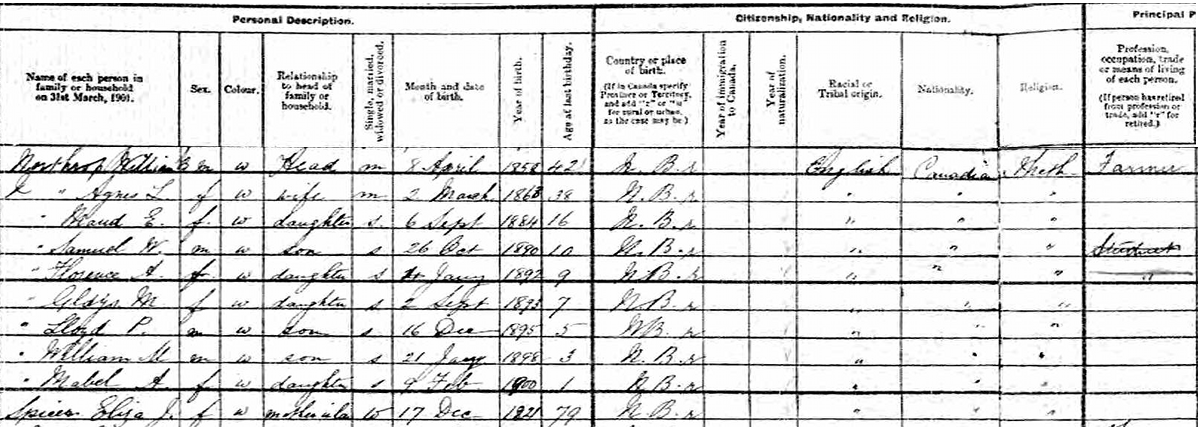 Personal Description. Citizenship, Nationality and Religion. Principal P
Name of each person in family or household on 31st March, 1901. Sex. Colour. Relationship to head of family or household. Single, married, widowed or divorced. Month and date of birth. Year of birth. Age at last birthday. Country or place of birth. (If in Canada specify Province or Territory, and add "r" or "u" for rural or urban, as the case may be.) Year of immigration to Canada. Year of naturalization. Racial or Tribal origin. Nationality. Religion. Profession, occupation, trade or means of living of each person. (If person has retired from profession or trade, add "r" for retired.)
Northrop William B m w Head m 8 April 1858 42 N. B. r English Canadian Meth Farmer
" Agnes L. f w wife m 2 March 1863 38 N. B. r " " "
" Maud E. f. w daughter s. 6 Sept 1884 16 N. B. r " " "
" Samuel W. m w son s 26 Oct 1890 10 N. B. r " " " Student
" Florence A. f w daughter s Jany 1892 9 N B. r " " " "
" Gladys M f w daughter s 2 Sept 1893 7 N. B. r " " "
" Lloyd P. m w son s. 16 Dec 1895 5 N B. r " " "
" William M m w son s 21 Jany 1898 3 N. B. r " " "
" Mabel A. f w daughter s 9 Feb 1900 1 N. B. r " " "
Spicer Eliza J. f w w 17 Dec 1821 79 N. B. r " " "